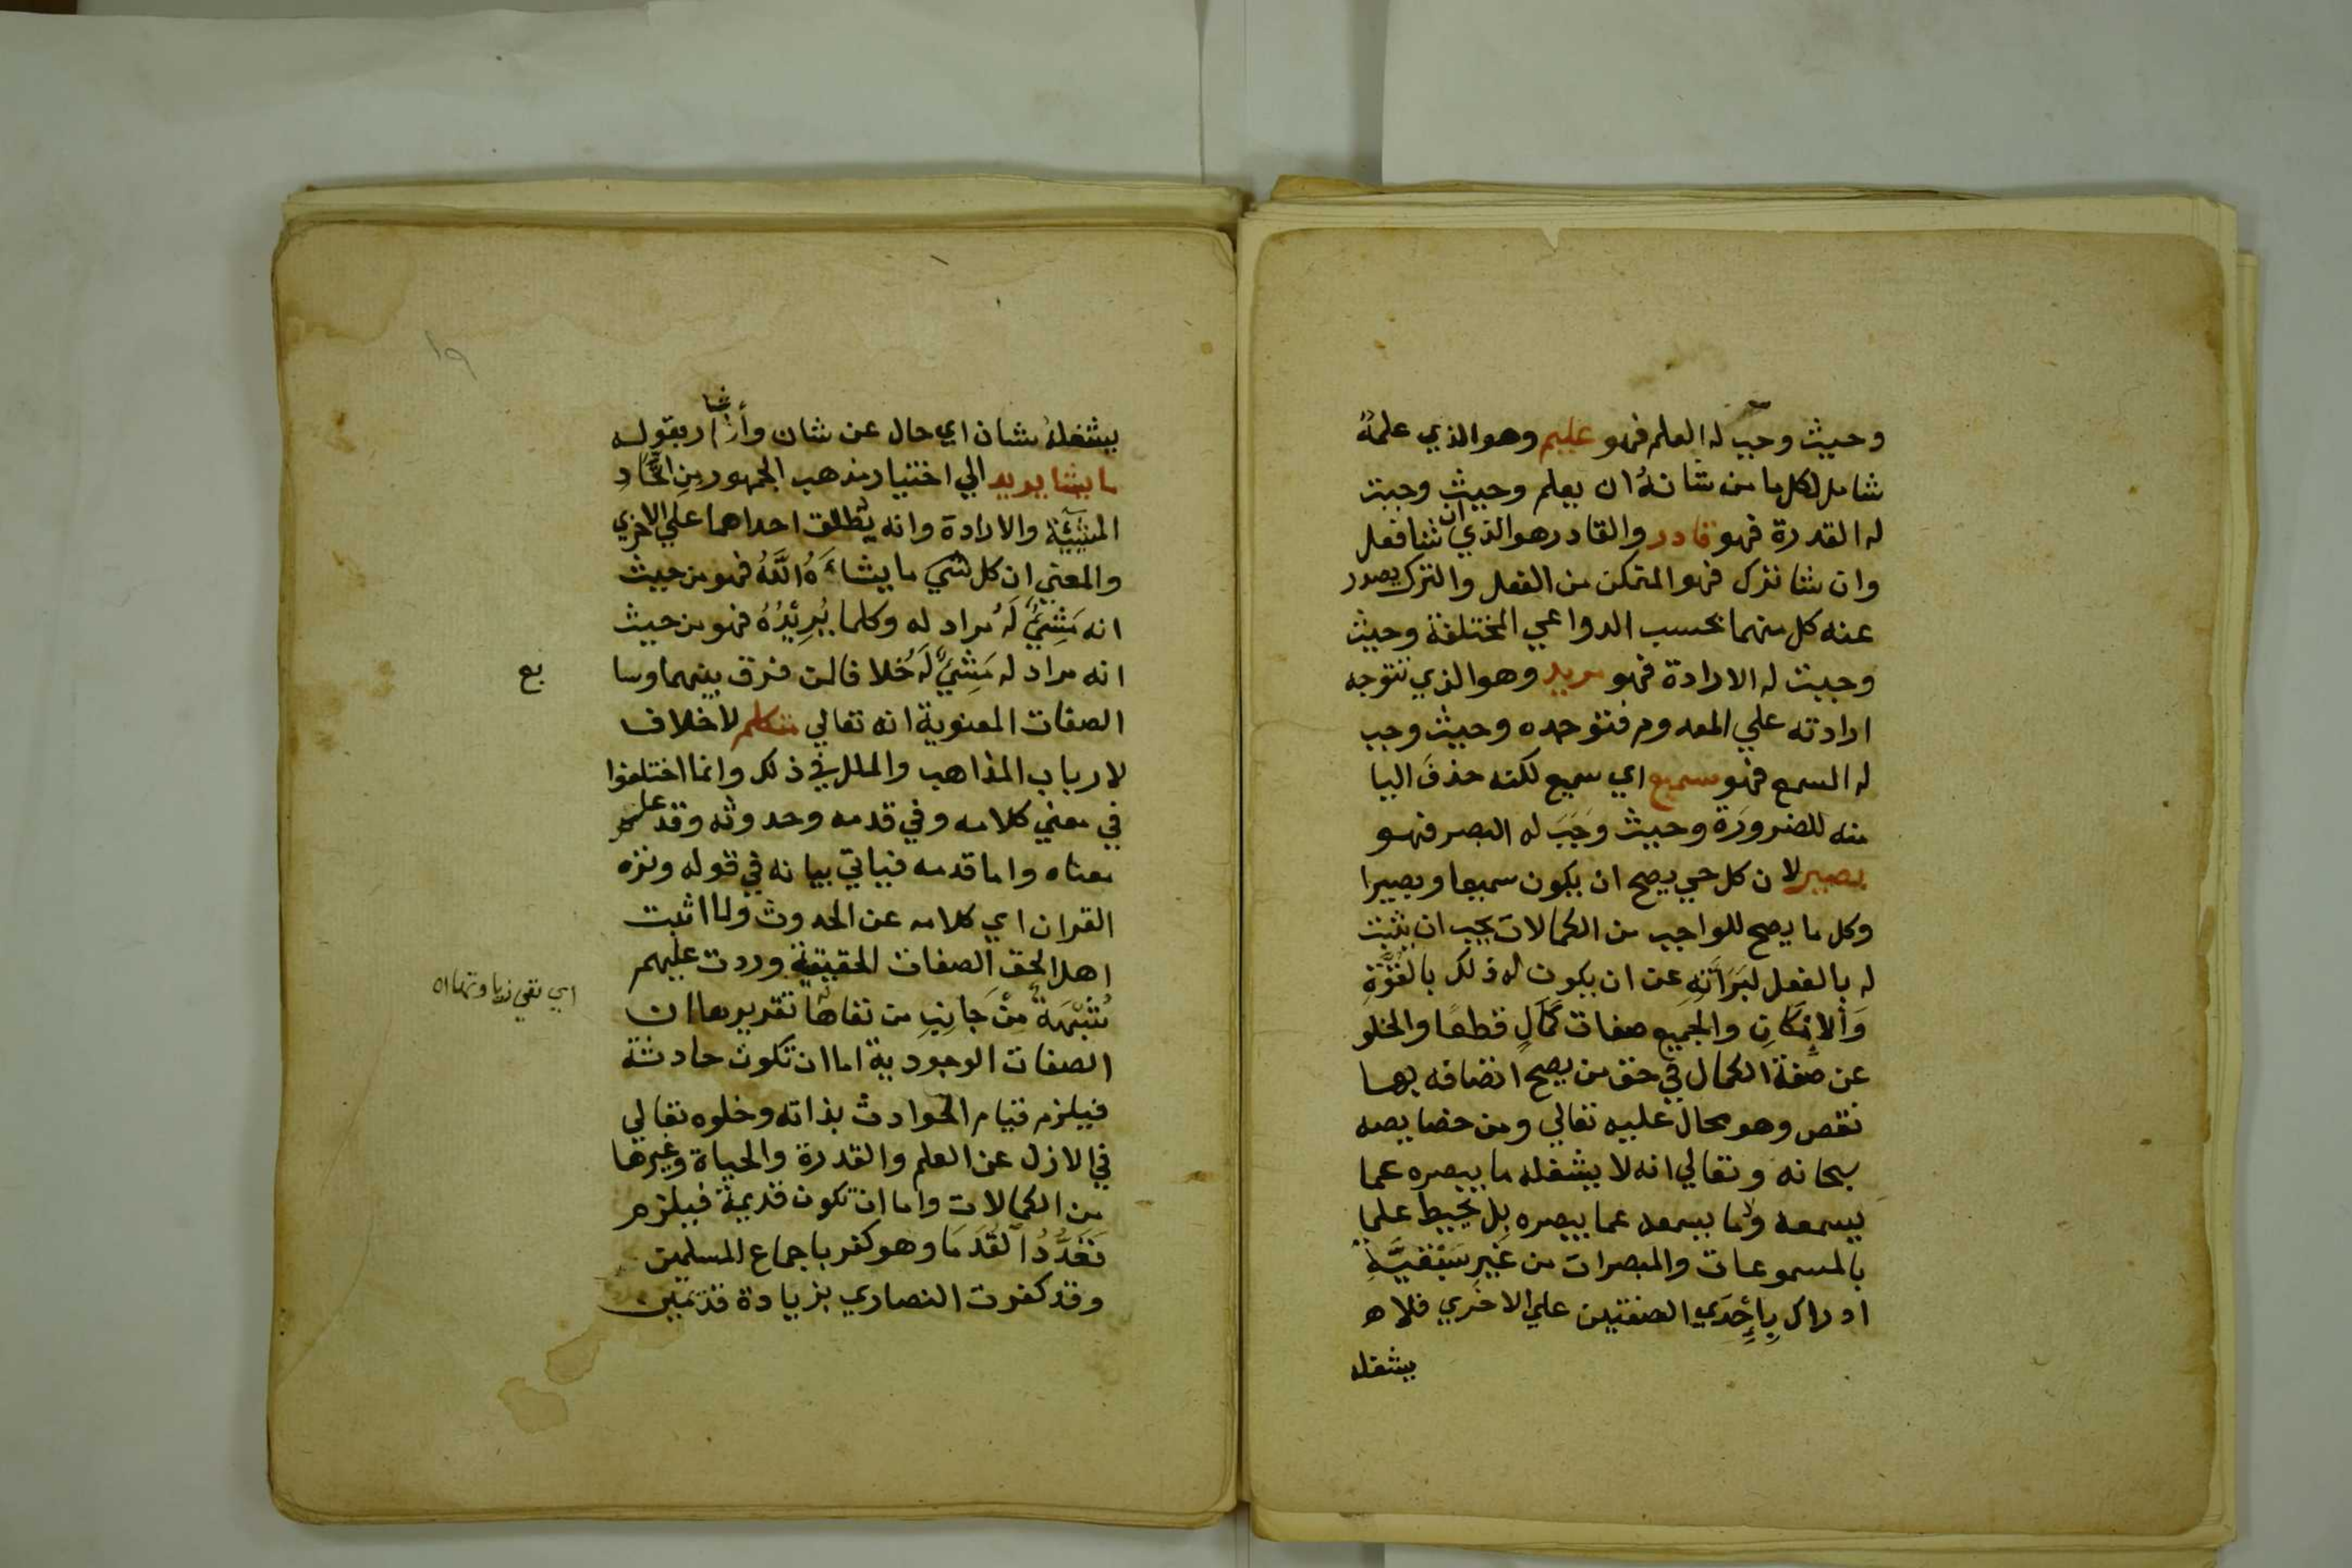 وحيث وجب له العلم فهو عليم وهو الذي علمهُ
شامل لكل ما من شانهُ ان يعلم وحيث وجبت
له القدرة فهو قادر والقادر هو الذي ان شا فعل
وان شا ترك فهو المتمكن من الفعل والترك يصدر
عنه كل منهما بحسب الدواعي المختلفة وحيث
وجبت له الارادة فهو مريد وهو الذي تتوجه
ارادته علي المعدوم فتوجده وحيث وجب
له السمع فهو سمع اي سميع لكنه حذف اليا
منه للضرورة وحيث وجَبَ له البصر فهو
بصير لان كل حي يصح ان يكون سميعا وبصيرا
وكل ما يصح للواجب من الكمالات يجب ان يثبت
له بالفعل لبَرَاتِهِ عن ان يكون له ذلك بالقُوَّةِ
وَالاِمْكَانِ والجميع صفات كَمَالٍ قطعًا والخلو
عن صِفة الكمال في حق من يصح اتصافه بها
نقص وهو محال عليه تعالي ومن خصايصه
سبحانه وتعالي انه لا يشغله ما يبصره عما
يسمعه ولا ما يسمعه عما يبصره بل يحيط علما
بالمسموعات والمبصرات من غَيرِ سَبْقيَّةِ
ادراك بِاِحْدَي الصفتين علي الاخري فلا ه
يشغله
١٩
يشغلهُ شان اي حال عن شان وأشار بقوله
ما يشا يريد الي اختيار مذهب الجمهور مِنِ اتِّحَادِ
المشيئة والارادة وانه يُطلق احداهما علي الاخري
والمعني ان كل شي ما يشاءَهُ اللَّهُ فهو من حيث
انه مَشِيٌّ لَهُ مراد له وكلما يُرِيْدُهُ فهو من حيث
انه مراد له مَشِيٌّ لَهُ خلافا لمن فرق بينهما وسا
بع
الصفات المعنوية انه تعالي متكلم لا خلاف
لارباب المذاهب والملل في ذلك وانما اختلفوا
في معني كلامه وفي قدمه وحدوثه وقد علم
معناه واما قدمه فياتي بيانه في قوله ونزه
القران اي كلامه عن الحدوث ولما اثبت
اهل الحق الصفات الحقيقية وردت عليهم
شُبْهَةٌ مِنْ جَانِبِ من نفاهَا تقريرها ان
اي نفي
الصفات الوجودية اما ان تكون حادثة
فيلزم قيام الحوادث بذاته وخلوه تعالي
في الازل عن العلم والقدرة والحياة وغيرها
من الكمالات واما ان تكون قديمة فيلزم
تَعَدُّدُ القُدَمَا وهو كفر باجماع المسلمين
وقد كفرت النصاري بزيادة قديمين